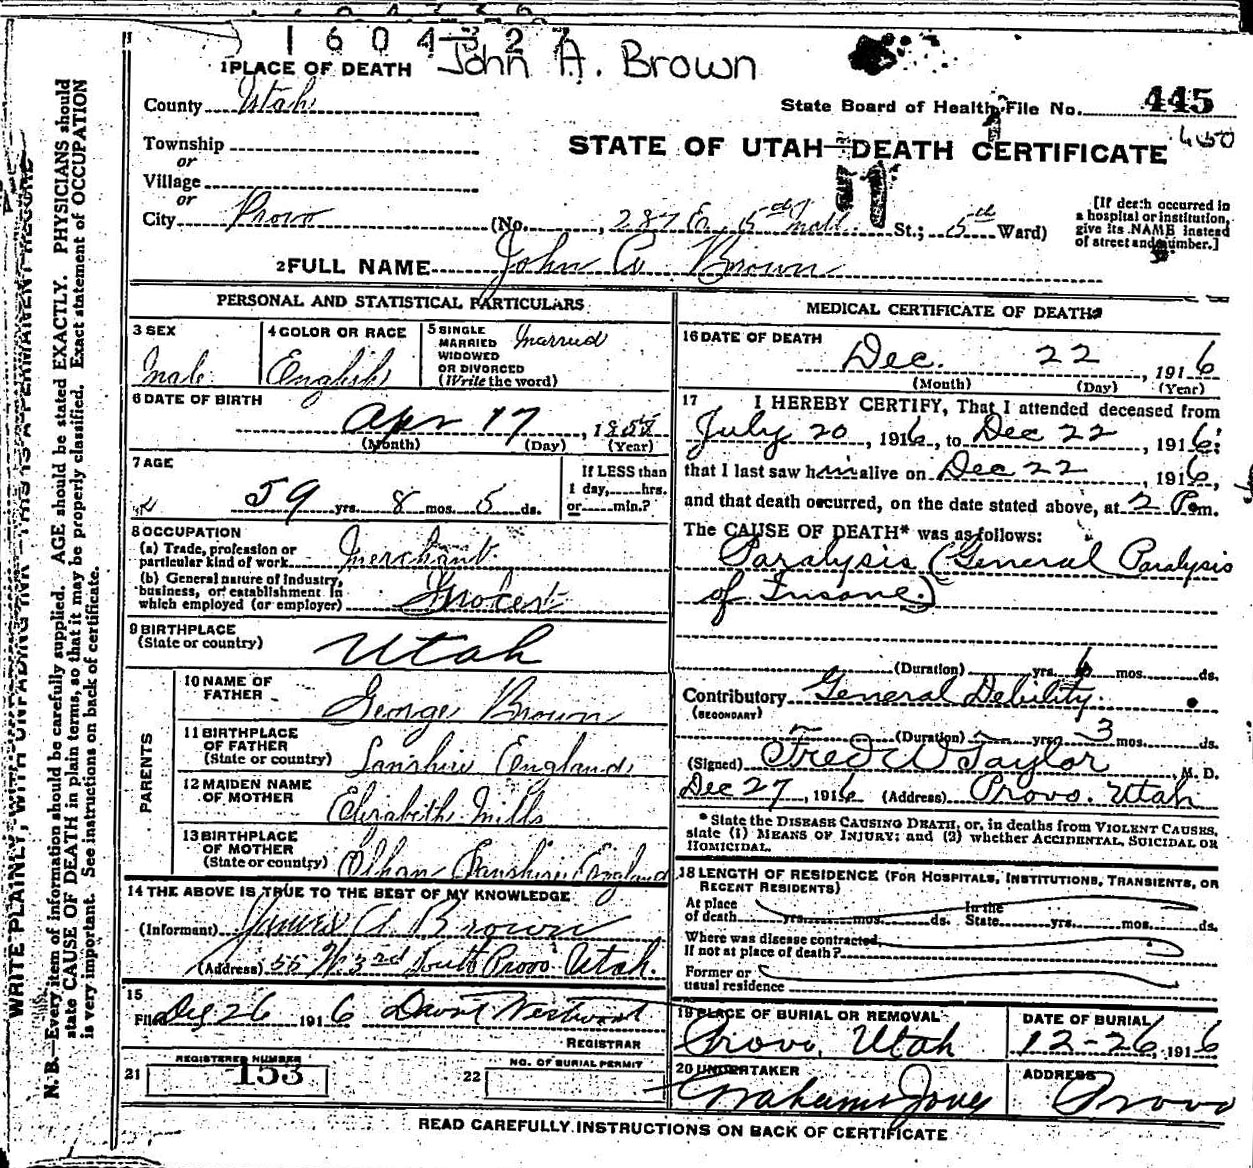 1604327
John A. Brown
1 PLACE OF DEATH
County Utah
State Board of Health File No. 445
Township
or
STATE OF UTAH—DEATH CERTIFICATE
Village
or
City Provo (No. , 287 E. 5th St.; 5th Ward)
[If death occurred in
a hospital or institution,
give its NAME instead
of street and number.]
2 FULL NAME John A. Brown
PERSONAL AND STATISTICAL PARTICULARS
3 SEX
Male
4 COLOR OR RACE
English
5 SINGLE
MARRIED
WIDOWED
OR DIVORCED
(Write the word)
Married
6 DATE OF BIRTH
Apr 17, 18
(Month) (Day) (Year)
7 AGE
59 yrs. 8 mos. 5 ds.
If LESS than
1 day, hrs.
or min.?
8 OCCUPATION
(a) Trade, profession or
particular kind of work Merchant
(b) General nature of industry,
business, or establishment in
which employed (or employer)
9 BIRTHPLACE
(State or country) Utah
PARENTS
10 NAME OF
FATHER George Brown
11 BIRTHPLACE
OF FATHER
(State or country) Lanshire England
12 MAIDEN NAME
OF MOTHER Elizabeth Mills
13 BIRTHPLACE
OF MOTHER
(State or country) Lanshire England
14 THE ABOVE IS TRUE TO THE BEST OF MY KNOWLEDGE
(Informant) James A. Brown
(Address) 55 W. 3rd South Provo Utah.
15
Filed Dec 26 1916 Westwood
REGISTRAR
21 REGISTERED NUMBER
153
22 NO. OF BURIAL PERMIT
MEDICAL CERTIFICATE OF DEATH
16 DATE OF DEATH
Dec. 22, 1916
(Month) (Day) (Year)
17 I HEREBY CERTIFY, That I attended deceased from
July 20, 1916, to Dec 22, 1916,
that I last saw him alive on Dec 22, 1916,
and that death occurred, on the date stated above, at 2 P.m.
The CAUSE OF DEATH* was as follows:
Paralysis (General Paralysis
of Insane.)
(Duration) yrs. 6 mos. ds.
Contributory General Debility.
(SECONDARY)
(Duration) yrs. 3 mos. ds.
(Signed) Fred W Taylor, M. D.
Dec 27, 1916 (Address) Provo. Utah
*State the DISEASE CAUSING DEATH, or, in deaths from VIOLENT CAUSES,
state (1) MEANS OF INJURY; and (2) whether ACCIDENTAL, SUICIDAL OR
HOMICIDAL.
18 LENGTH OF RESIDENCE (FOR HOSPITALS, INSTITUTIONS, TRANSIENTS, OR
RECENT RESIDENTS)
At place
of death yrs. mos. ds.
In the
State yrs. mos. ds.
Where was disease contracted,
if not at place of death?
Former or
usual residence
19 PLACE OF BURIAL OR REMOVAL
Provo, Utah
DATE OF BURIAL
12-26, 1916
20 UNDERTAKER
ADDRESS
Provo
READ CAREFULLY INSTRUCTIONS ON BACK OF CERTIFICATE
WRITE PLAINLY, WITH UNFADING INK—THIS IS A PERMANENT RECORD
N. B.—Every item of information should be carefully supplied. AGE should be stated EXACTLY. PHYSICIANS should
state CAUSE OF DEATH in plain terms, so that it may be properly classified. Exact statement of OCCUPATION
is very important. See instructions on back of certificate.